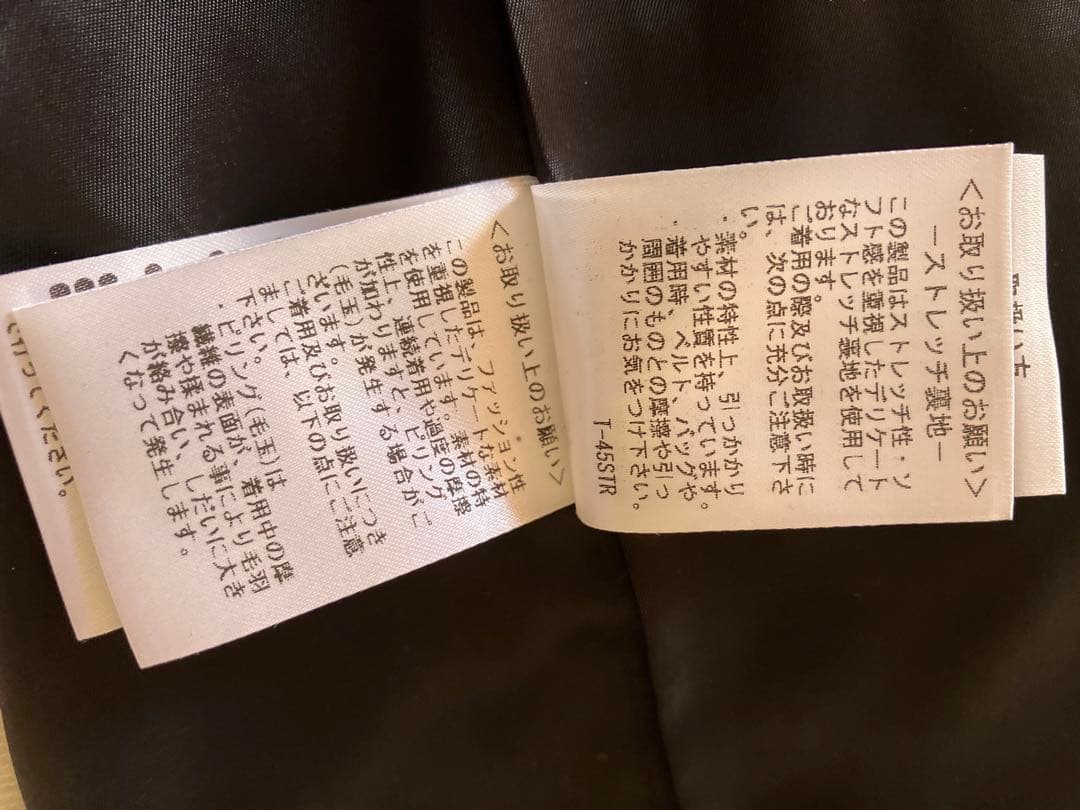 <お取り扱い上のお願い>
ーストレッチ裏地ー
この製品はストレッチ性・ソ
フト感を重視したデリケート
なストレッチ裏地を使用して
おります。
ご着用の際及びお取扱い時に
は、次の点に充分ご注意下さ
い。
・素材の特性上、引っかかり
やすい性質を持っています。
・着用時、ベルト、バッグや
周囲のものとの摩擦や引っ
かかりにお気をつけ下さい。
T-45STR
<お取り扱い上のお願い>
この製品は、ファッション性
を重視したデリケートな素材
を使用しています。素材の特
性上、連続着用や過度の摩擦
が加わりますと、ピリング
(毛玉)が発生する場合がご
ざいます。
ご着用及びお取り扱いにつき
ましては、以下の点にご注意
下さい。
・ピリング(毛玉)は
繊維の表面が、着用中の摩
擦や揉まれる事により毛羽
が絡み合い、しだいに大き
くなって発生します。
ください。